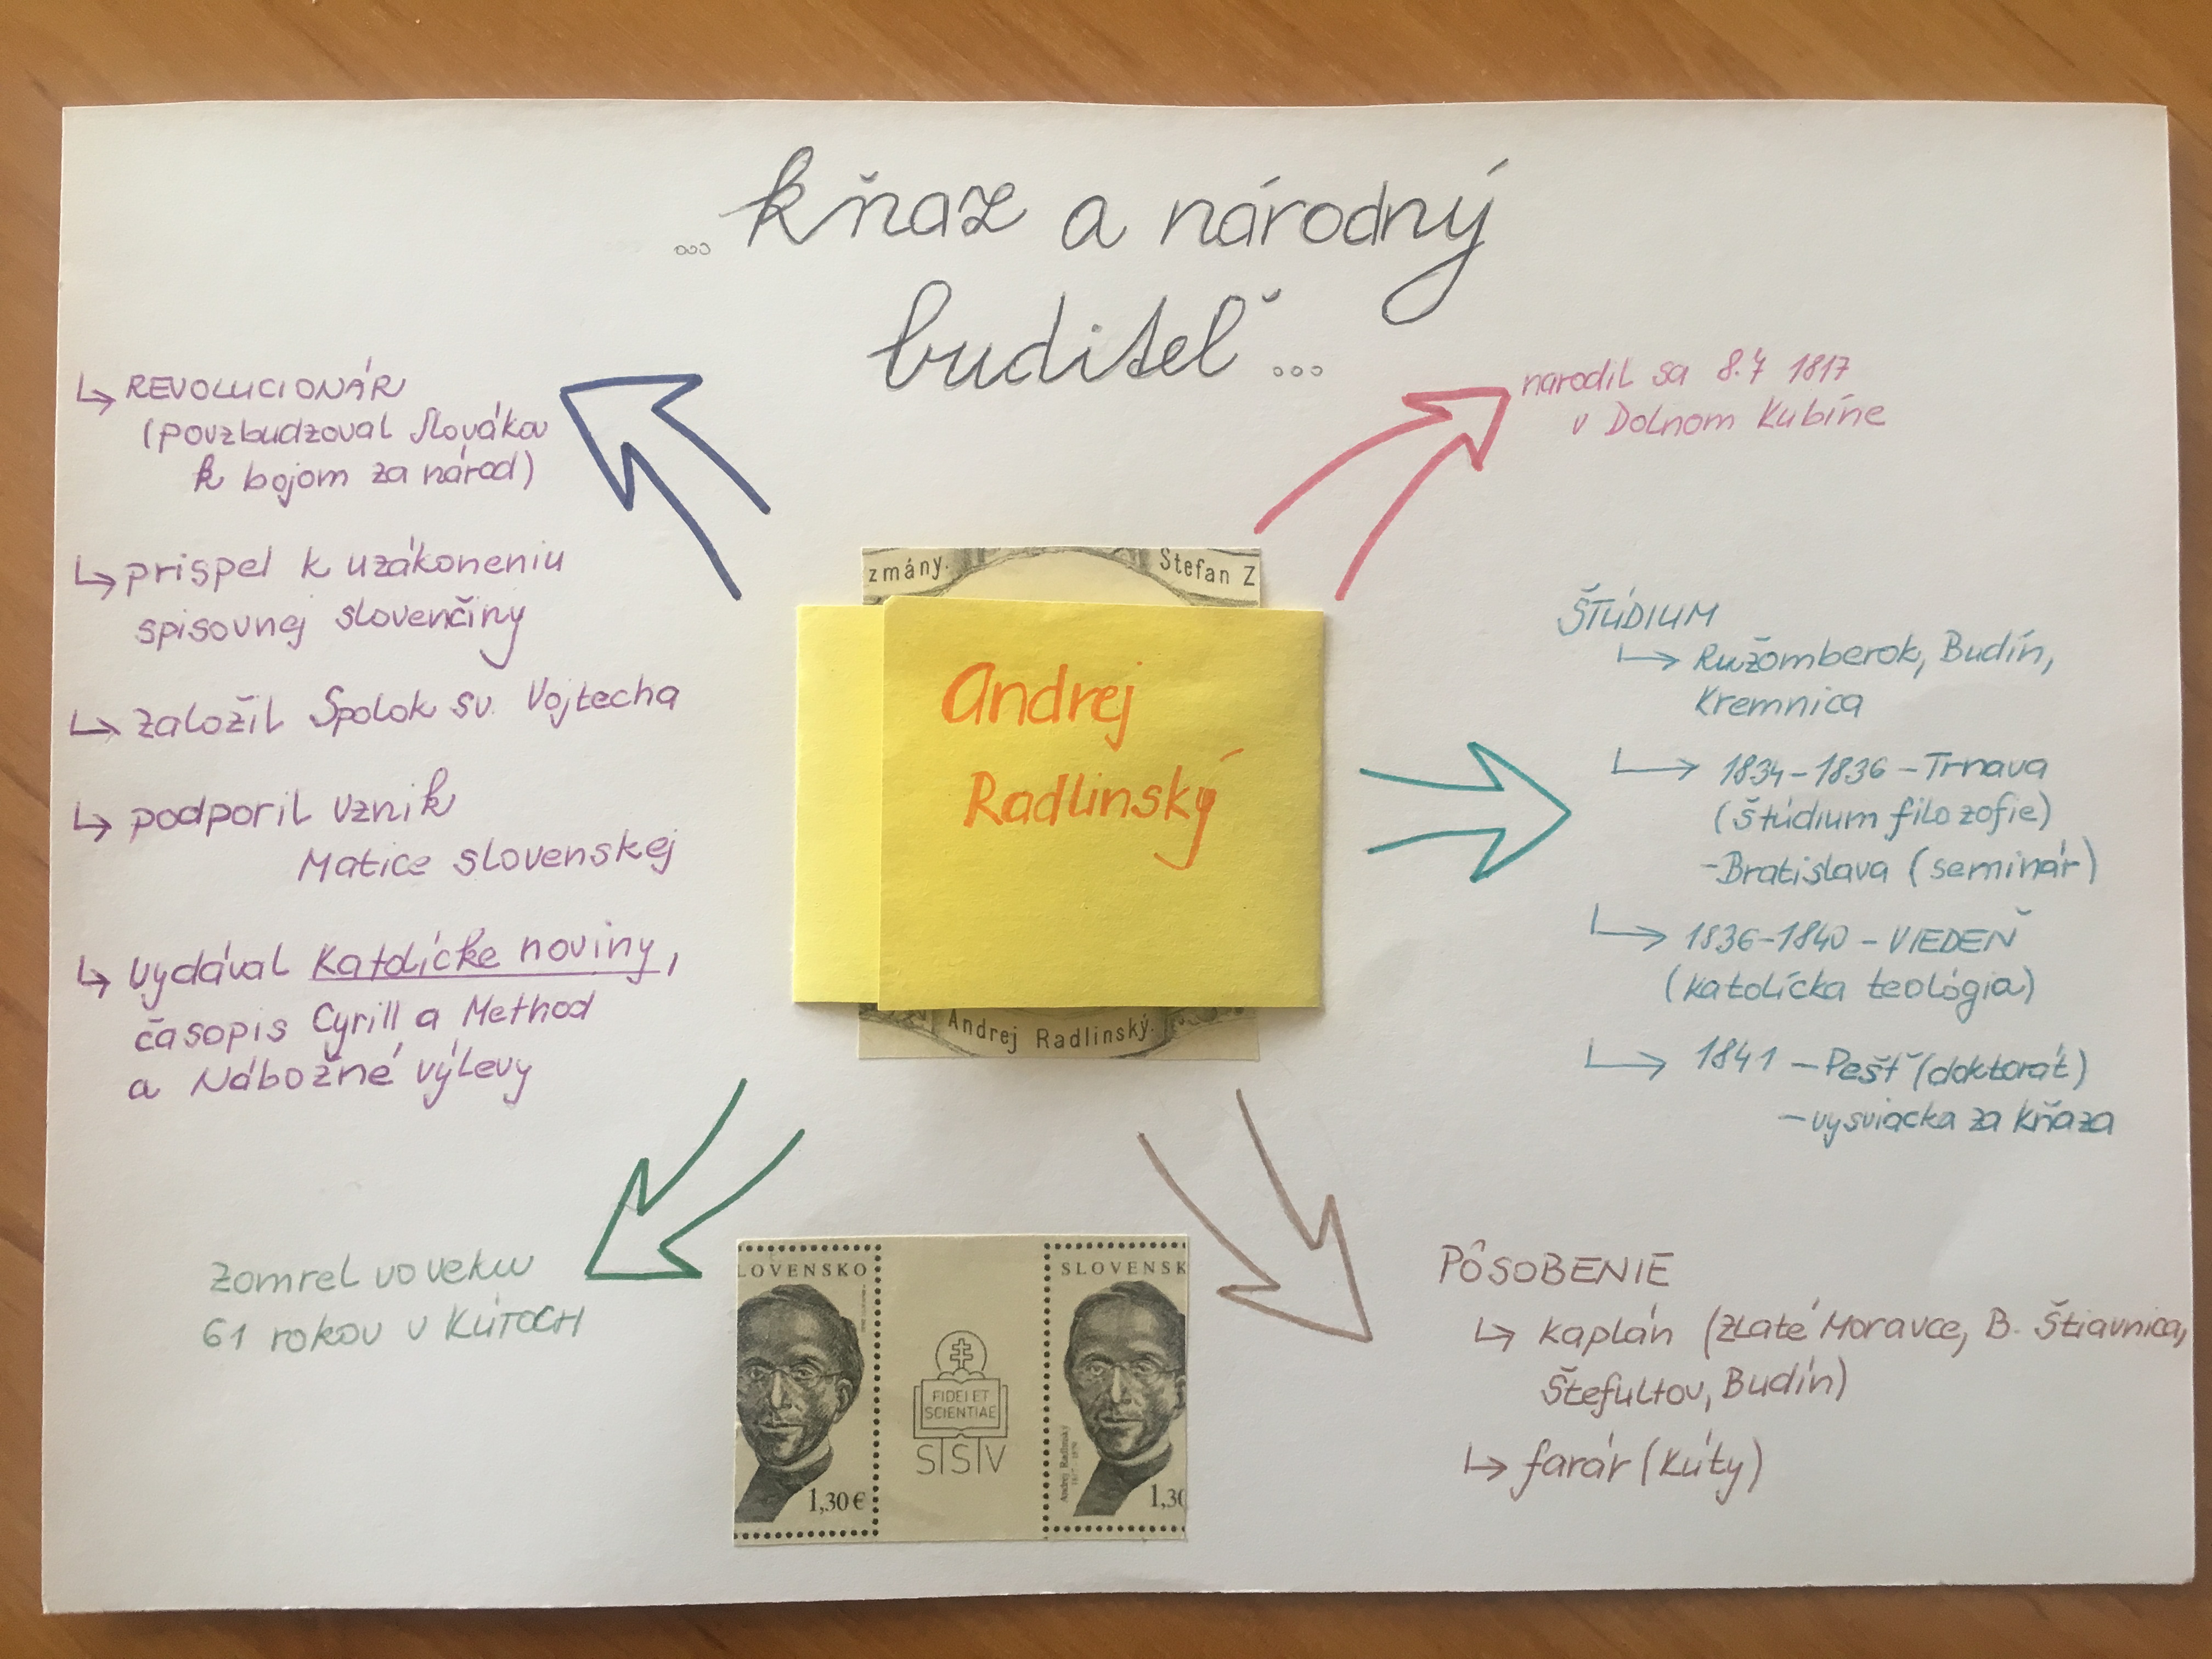 ... kňaz a národný
buditeľ ...
↳ REVOLUCIONÁR
(povzbudzoval Slovákov
k bojom za národ)
↳ prispel k uzákoneniu
spisovnej slovenčiny
↳ založil Spolok sv. Vojtecha
↳ podporil vznik
Matice slovenskej
↳ vydával Katolícke noviny,
časopis Cyrill a Method
a Nábožné výlevy
zomrel vo veku
61 rokov v KÚTOCH
zmány. Stefan Z
Andrej
Radlinský
Andrej Radlinský.
LOVENSKO
1,30 €
FIDEI ET
SCIENTIAE
SSV
SLOVENSK
Andrej Radlinský
1,30
narodil sa 8.7 1817
v Dolnom Kubíne
ŠTÚDIUM
↳ Ružomberok, Budín,
Kremnica
↳ 1834-1836 - Trnava
(štúdium filozofie)
- Bratislava (seminár)
↳ 1836-1840 - VIEDEŇ
(katolícka teológia)
↳ 1841 - Pešť (doktorát)
- vysviacka za kňaza
PÔSOBENIE
↳ kaplán (Zlaté Moravce, B. Štiavnica,
Štefultov, Budín)
↳ farár (Kúty)